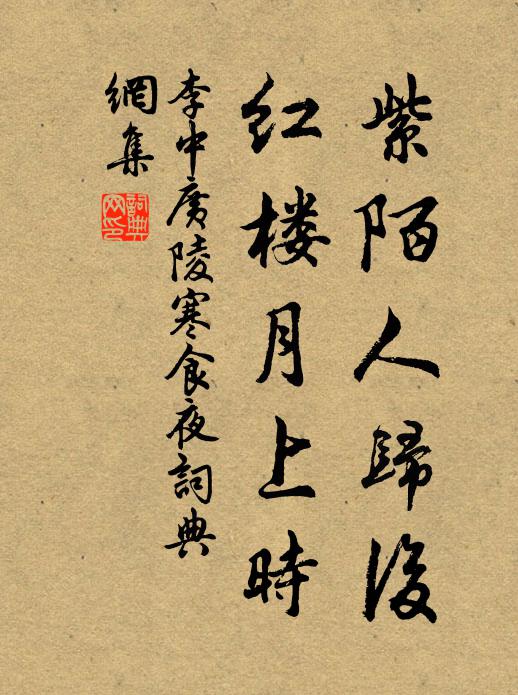 紫陌人歸後
红楼月上時
李中廣陵寒食夜詞典
網集
詞典
网印